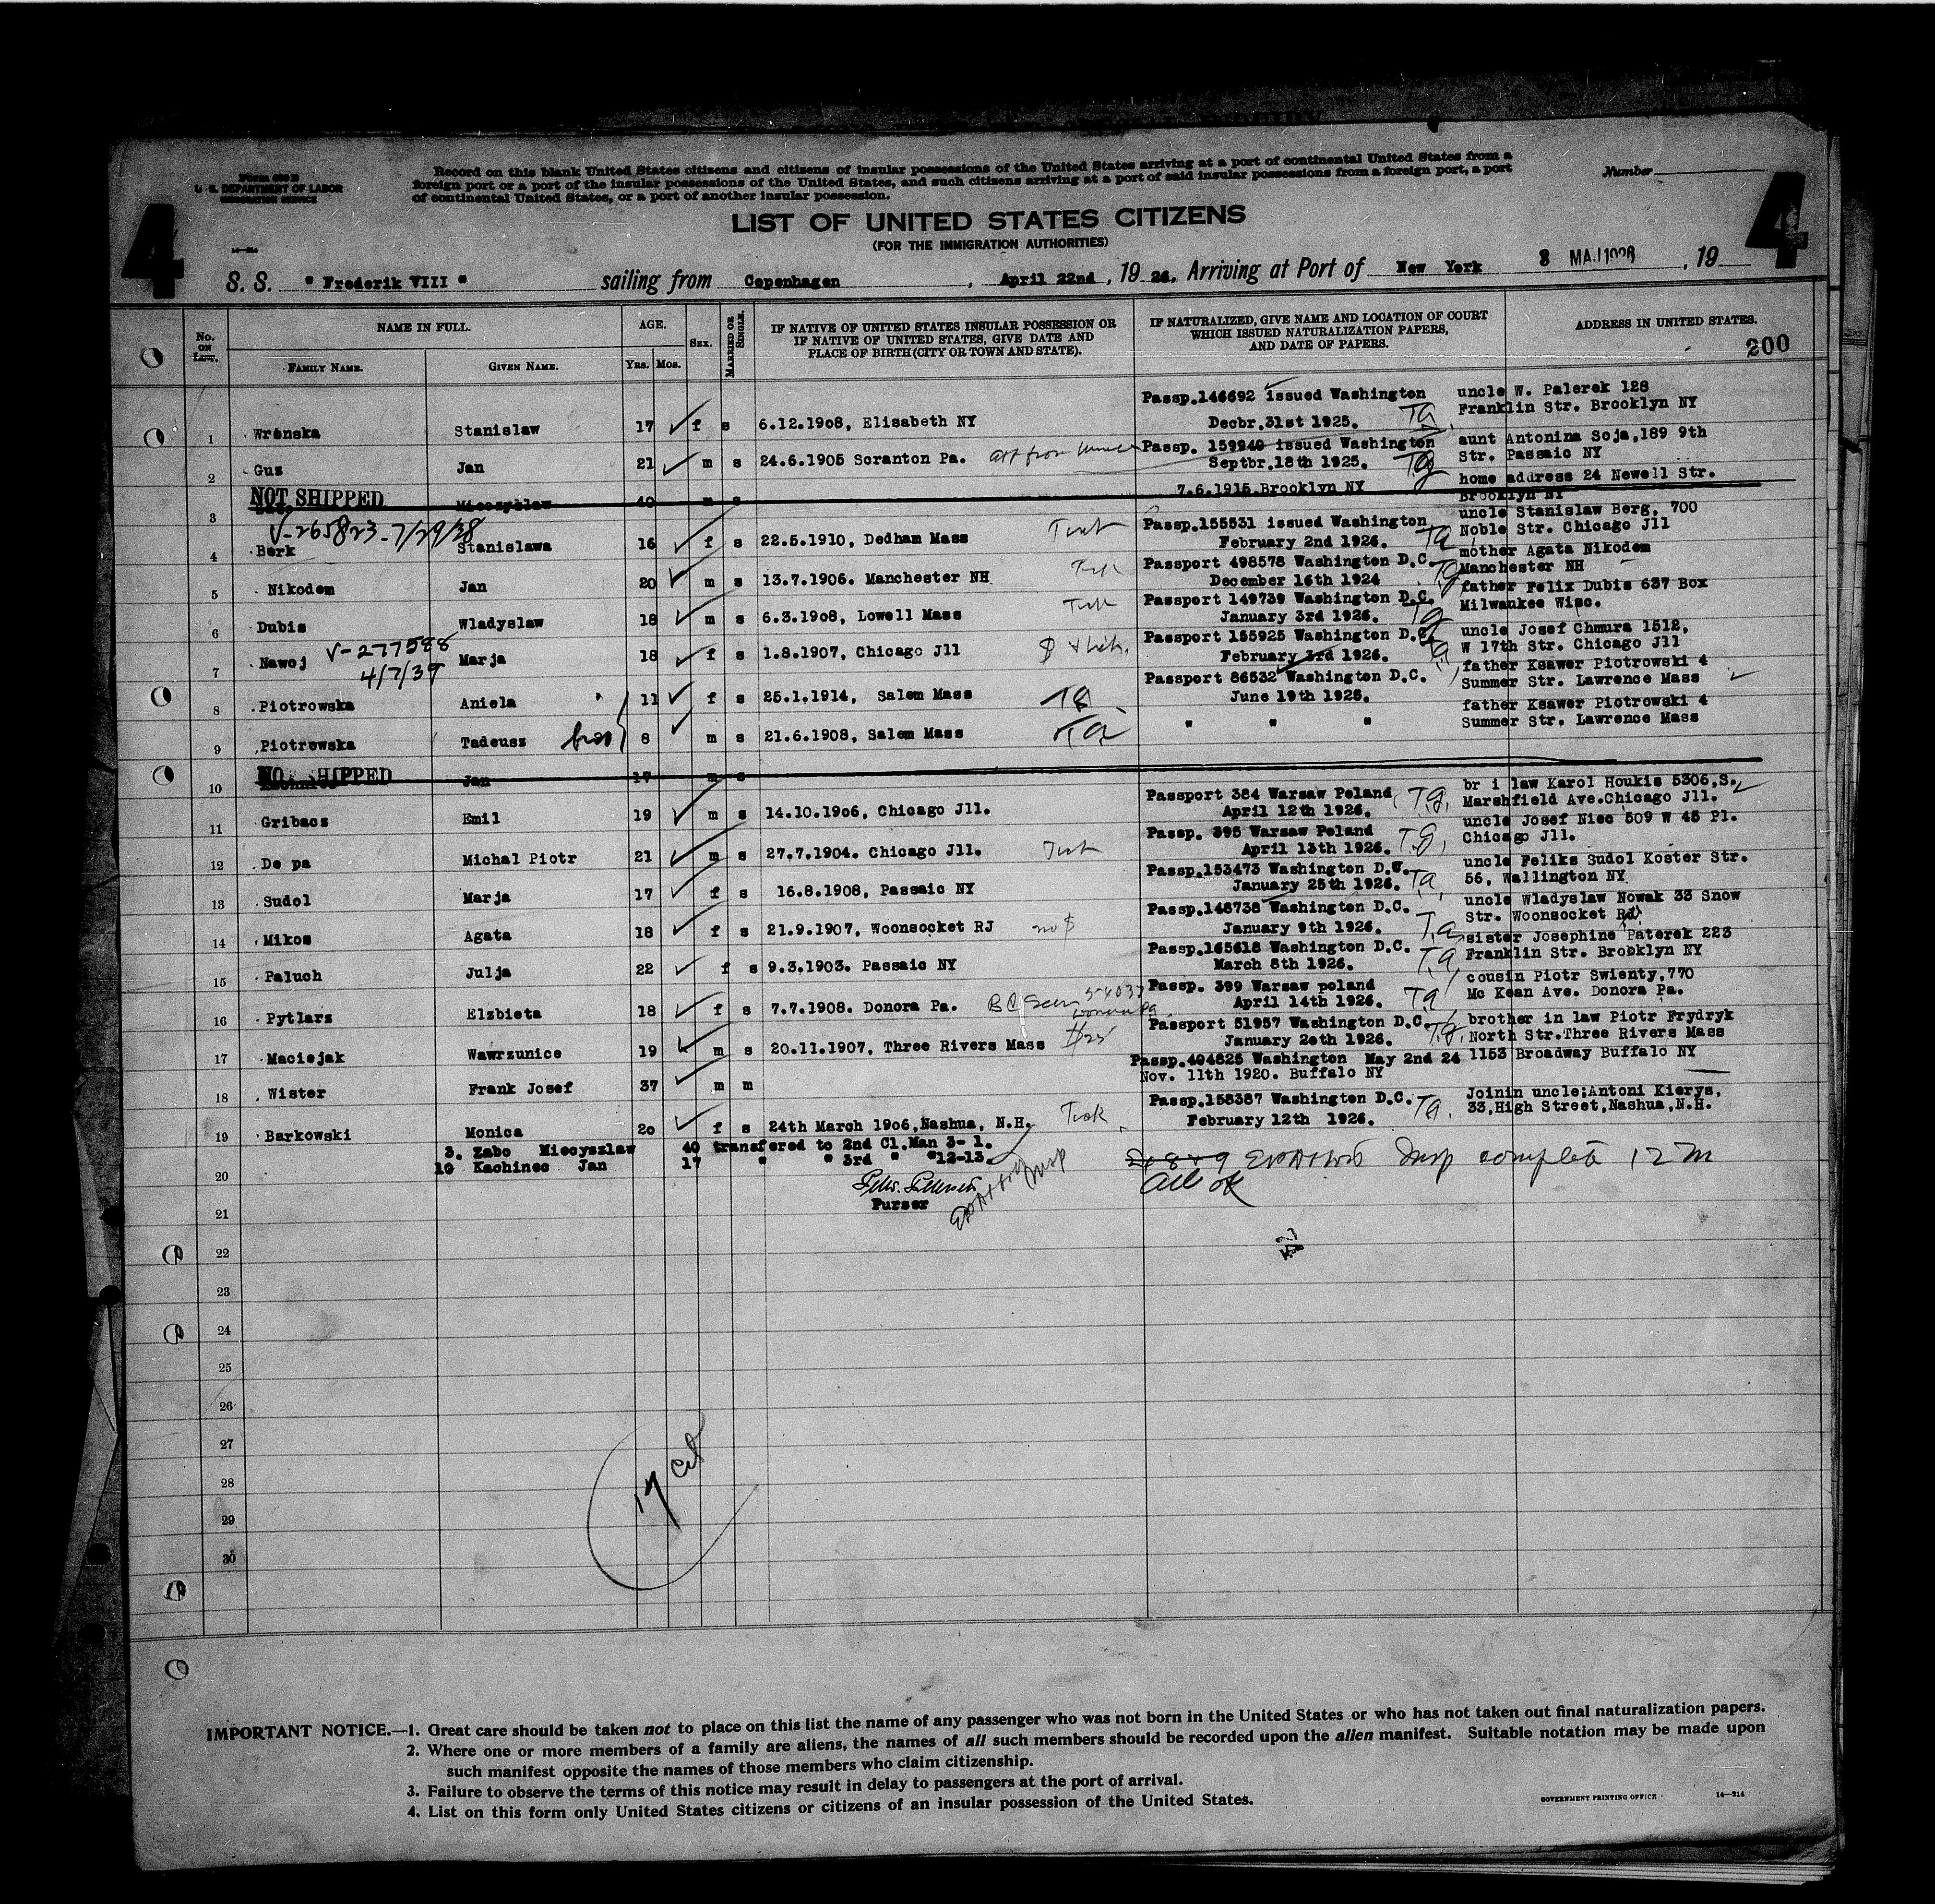 Form 630 B
U. S. DEPARTMENT OF LABOR
IMMIGRATION SERVICE
Record on this blank United States citizens and citizens of insular possessions of the United States arriving at a port of continental United States from a
foreign port or a port of the insular possessions of the United States, and such citizens arriving at a port of said insular possessions from a foreign port, a port
of continental United States, or a port of another insular possession.
Number
4
4
LIST OF UNITED STATES CITIZENS
(FOR THE IMMIGRATION AUTHORITIES)
14—214
S. S. " Frederik VIII " sailing from Copenhagen , April 22nd , 19 26, Arriving at Port of New York 3 MAJ 1926 , 19
No. ON LIST.
NAME IN FULL.
FAMILY NAME.
GIVEN NAME.
AGE.
Yrs. Mos.
SEX.
MARRIED OR SINGLE.
IF NATIVE OF UNITED STATES INSULAR POSSESSION OR
IF NATIVE OF UNITED STATES, GIVE DATE AND
PLACE OF BIRTH (CITY OR TOWN AND STATE).
IF NATURALIZED, GIVE NAME AND LOCATION OF COURT
WHICH ISSUED NATURALIZATION PAPERS,
AND DATE OF PAPERS.
ADDRESS IN UNITED STATES.
200
Passp.146692 issued Washington uncle W. Palerek 128
1 Wrenska Stanislaw 17 f s 6.12.1908, Elisabeth NY Decbr.31st 1925. Ta Franklin Str. Brooklyn NY
Passp. 159940 issued Washington aunt Antonina Soja,189 9th
2 Gus Jan 21 m s 24.6.1905 Scranton Pa. Septbr.18th 1925. Str. Passaic NY
3 NOT SHIPPED Miecyslaw 40 m s 7.6.1915.Brooklyn NY home address 24 Newell Str.
Brooklyn NY
V-265823-7/29/38
Passp.155531 issued Washington uncle Stanislaw Berg, 700
4 Berk Stanislawa 16 f s 22.5.1910, Dedham Mass February 2nd 1926. Ta Noble Str. Chicago Jll
Passport 498578 Washington D.C. mother Agata Nikodem
5 Nikodem Jan 20 m s 13.7.1906. Manchester NH December 16th 1924 Manchester NH
Passport 149739 Washington D.C. father Felix Dubis 637 Box
6 Dubis Wladyslaw 18 m s 6.3.1908, Lowell Mass January 3rd 1926. Milwaukee Wisc.
V-277588
4/7/39
Passport 155925 Washington D.C. uncle Josef Chmura 1512,
7 Nawoj Marja 18 f s 1.8.1907, Chicago Jll February 3rd 1926. W 17th Str. Chicago Jll
Passport 86532 Washington D.C. father Ksawer Piotrowski 4
8 Piotrowska Aniela 11 f s 25.1.1914, Salem Mass June 19th 1925. Summer Str. Lawrence Mass
" " " father Ksawer Piotrowski 4
9 Piotrowska Tadeusz bro 8 m s 21.6.1908, Salem Mass Ta Summer Str. Lawrence Mass
10 NOT SHIPPED Jan 17 m s
Passport 384 Warsaw Poland br i law Karol Houkis 5306,S.
11 Gribacs Emil 19 m s 14.10.1906, Chicago Jll. April 12th 1926. Marshfield Ave.Chicago Jll.
Passp. 395 Warsaw Poland uncle Josef Niec 509 W 45 Pl.
12 Depa Michal Piotr 21 m s 27.7.1904. Chicago Jll. April 13th 1926. Chicago Jll.
Passp.153473 Washington D.W. uncle Feliks Sudol Koster Str.
13 Sudol Marja 17 f s 16.8.1908, Passaic NY January 25th 1926. Ta 56, Wallington NY
Passp.148738 Washington D.C. uncle Wladyslaw Nowak 33 Snow
14 Mikos Agata 18 f s 21.9.1907, Woonsocket RJ no $ January 9th 1926. Ta Str. Woonsocket
Passp.165618 Washington D.C. sister Josephine Paterek 223
15 Paluch Julja 22 f s 9.3.1903. Passaic NY March 8th 1926. Ta Franklin Str. Brooklyn NY
Passp. 399 Warsaw poland cousin Piotr Swienty,770
16 Pytlarz Elzbieta 18 f s 7.7.1908. Donora Pa. BC Seen April 14th 1926. Ta Mc Kean Ave. Donora Pa.
Passport 51957 Washington D.C. brother in law Piotr Frydryk
17 Maciejak Wawrzunice 19 m s 20.11.1907, Three Rivers Mass $25 January 20th 1926. North Str.Three Rivers Mass
Passp.404825 Washington May 2nd 24 1153 Broadway Buffalo NY
18 Wister Frank Josef 37 m m Nov. 11th 1920. Buffalo NY
Passp.158387 Washington D.C. Joinin uncle;Antoni Kierys,
19 Barkowski Monica 20 f s 24th March 1906,Nashua, N.H. February 12th 1926. Ta 33,High Street,Nashua,N.H.
3. Zabo Miecyszlaw 40 transfered to 2nd Cl.Man 3-1.
10 Kachinec Jan 17 " " 3rd " "12-13.
20 Insp complete 12 M
All OK
Purser
21
22
23
24
25
26
27
28
29
30
17 Cit
IMPORTANT NOTICE.—1. Great care should be taken not to place on this list the name of any passenger who was not born in the United States or who has not taken out final naturalization papers.
2. Where one or more members of a family are aliens, the names of all such members should be recorded upon the alien manifest. Suitable notation may be made upon
such manifest opposite the names of those members who claim citizenship.
3. Failure to observe the terms of this notice may result in delay to passengers at the port of arrival.
4. List on this form only United States citizens or citizens of an insular possession of the United States.
GOVERNMENT PRINTING OFFICE 14—214